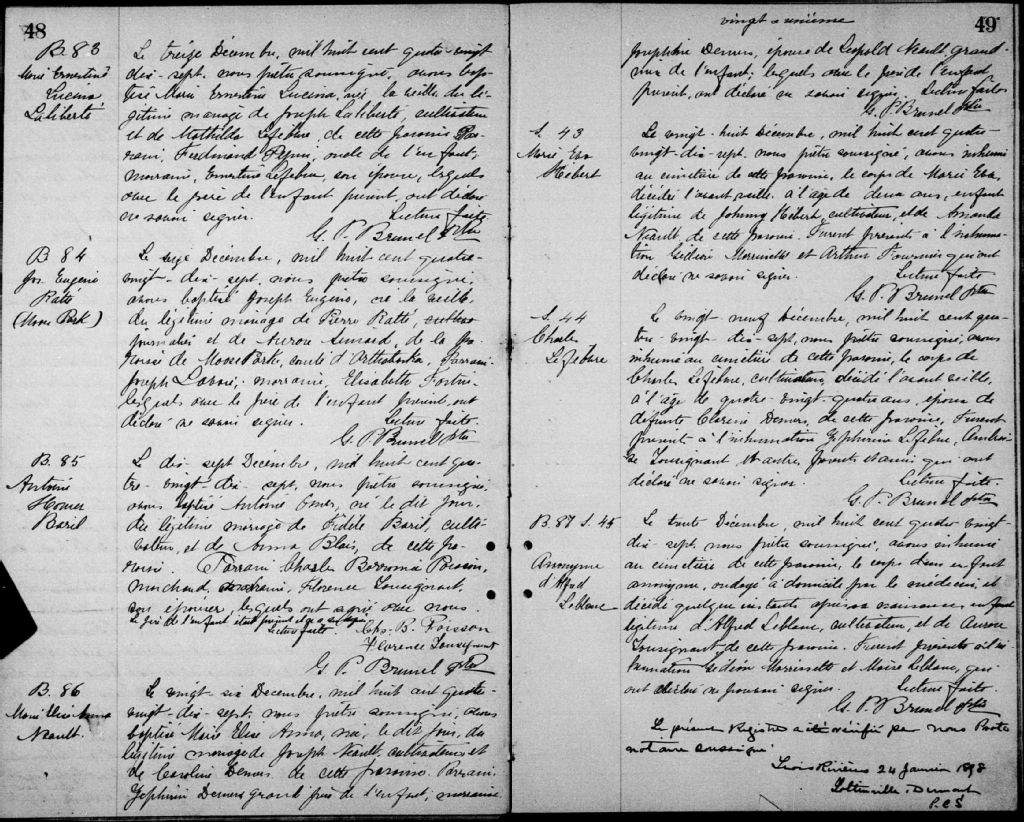 48
B. 83
Marie Ernestine
Lucina
Laliberté
Le treize Décembre, mil huit cent quatre-vingt
dix-sept, nous prêtre soussigné, avons bap-
tisé Marie Ernestine Lucina, née la veille du lé-
gitime mariage de Joseph Laliberté, cultivateur
et de Mathilda Lefebvre, de cette paroisse. Par-
rain, Ferdinand Pépin, oncle de l'enfant,
marraine, Ernestine Lefebvre, son épouse, lesquels
avec le père de l'enfant présent, ont déclaré
ne savoir signer. Lecture faite
G. P. Brunel Ptre
B. 84
Jos. Eugène
Ratté
(Moose Park)
Le seize Décembre, mil huit cent quatre-
vingt-dix-sept, nous prêtre soussigné,
avons baptisé Joseph Eugène, né la veille,
du légitime mariage de Pierre Ratté,
journalier et de Aurore Simard, de la pa-
roisse de Moose Park, comté d'Arthabaska, Parrain
Joseph Lavoie, marraine, Elisabeth Fortin
lesquels avec le père de l'enfant présent, ont
déclaré ne savoir signer. Lecture faite.
G. P. Brunel Ptre
B. 85
Antoine
Homer
Baril
Le dix-sept Décembre, mil huit cent qua-
tre-vingt-dix-sept, nous prêtre soussigné,
avons baptisé Antoine Omer, né le dit jour,
du légitime mariage de Fidèle Baril, culti-
vateur, et de Anna Blais, de cette pa-
roisse. Parrain Charles Borromé Poisson,
marchand, marraine, Florence Tousignant,
son épouse, lesquels ont signé avec nous.
Le père de l'enfant était présent et n'a su signer
Lecture faite. Chs. B. Poisson
Florence Tousignant
G. P. Brunel Ptre
B. 86
Marie Elise Anna
Neault.
Le vingt-six Décembre, mil huit cent quatre-
vingt-dix-sept, nous prêtre soussigné, avons
baptisé Marie Elise Anna, née, le dit jour, du
légitime mariage de Joseph Neault, cultivateur, et
de Caroline Demers de cette paroisse. Parrain
Zéphirin Demers grand père de l'enfant, marraine
49
vingt-unième
Josephine Demers, épouse de Léopold Neault grand-
mère de l'enfant; lesquels avec le père de l'enfant
présent, ont déclaré ne savoir signer. Lecture faite
G. P. Brunel Ptre
S. 43
Marie Eva
Hébert
Le vingt-huit Décembre, mil huit cent quatre-
vingt-dix-sept, nous prêtre soussigné, avons inhumé
au cimetière de cette paroisse, le corps de Marie Eva,
décédée l'avant veille, à l'âge de deux ans, enfant
légitime de Johnny Hébert, cultivateur, et de Amanda
Neault, de cette paroisse. Furent présents à l'inhuma-
tion Gédéon Morissette et Arthur Fournier qui ont
déclaré ne savoir signer.
Lecture faite
G. P. Brunel Ptre
S. 44
Charles
Lefebvre
Le vingt-neuf Décembre, mil huit cent qua-
tre-vingt-dix-sept, nous prêtre soussigné, avons
inhumé au cimetière de cette paroisse, le corps de
Charles Lefebvre, cultivateur, décédé l'avant veille,
à l'âge de quatre-vingt-quatre ans, époux de
défunte Clarisse Demers, de cette paroisse, Furent
présents à l'inhumation Zéphirin Lefebvre, Ambroi-
se Tousignant et autres, parents et amis qui ont
déclaré ne savoir signer. Lecture faite.
G. P. Brunel Ptre
B. 87 S. 45
Anonyme
d'Alfred
Leblanc
Le trente Décembre, mil huit cent quatre-vingt-
dix-sept, nous prêtre soussigné, avons inhumé
au cimetière de cette paroisse, le corps d'un enfant
anonyme, ondoyé à domicile par le médecin et
décédé quelques instants après sa naissance, enfant
légitime d'Alfred Leblanc, cultivateur, et de Aurore
Tousignant de cette paroisse. Furent présents à l'in-
humation Gédéon Morissette et Moïse Leblanc, qui
ont déclaré ne pouvoir signer. Lecture faite.
G. P. Brunel Ptre
Le présent Registre a été vérifié par nous Proto
notaire soussigné
Trois Rivières 24 Janvier 1898
P.C.S